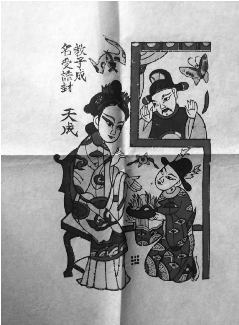 教子成
名受誥封
天成